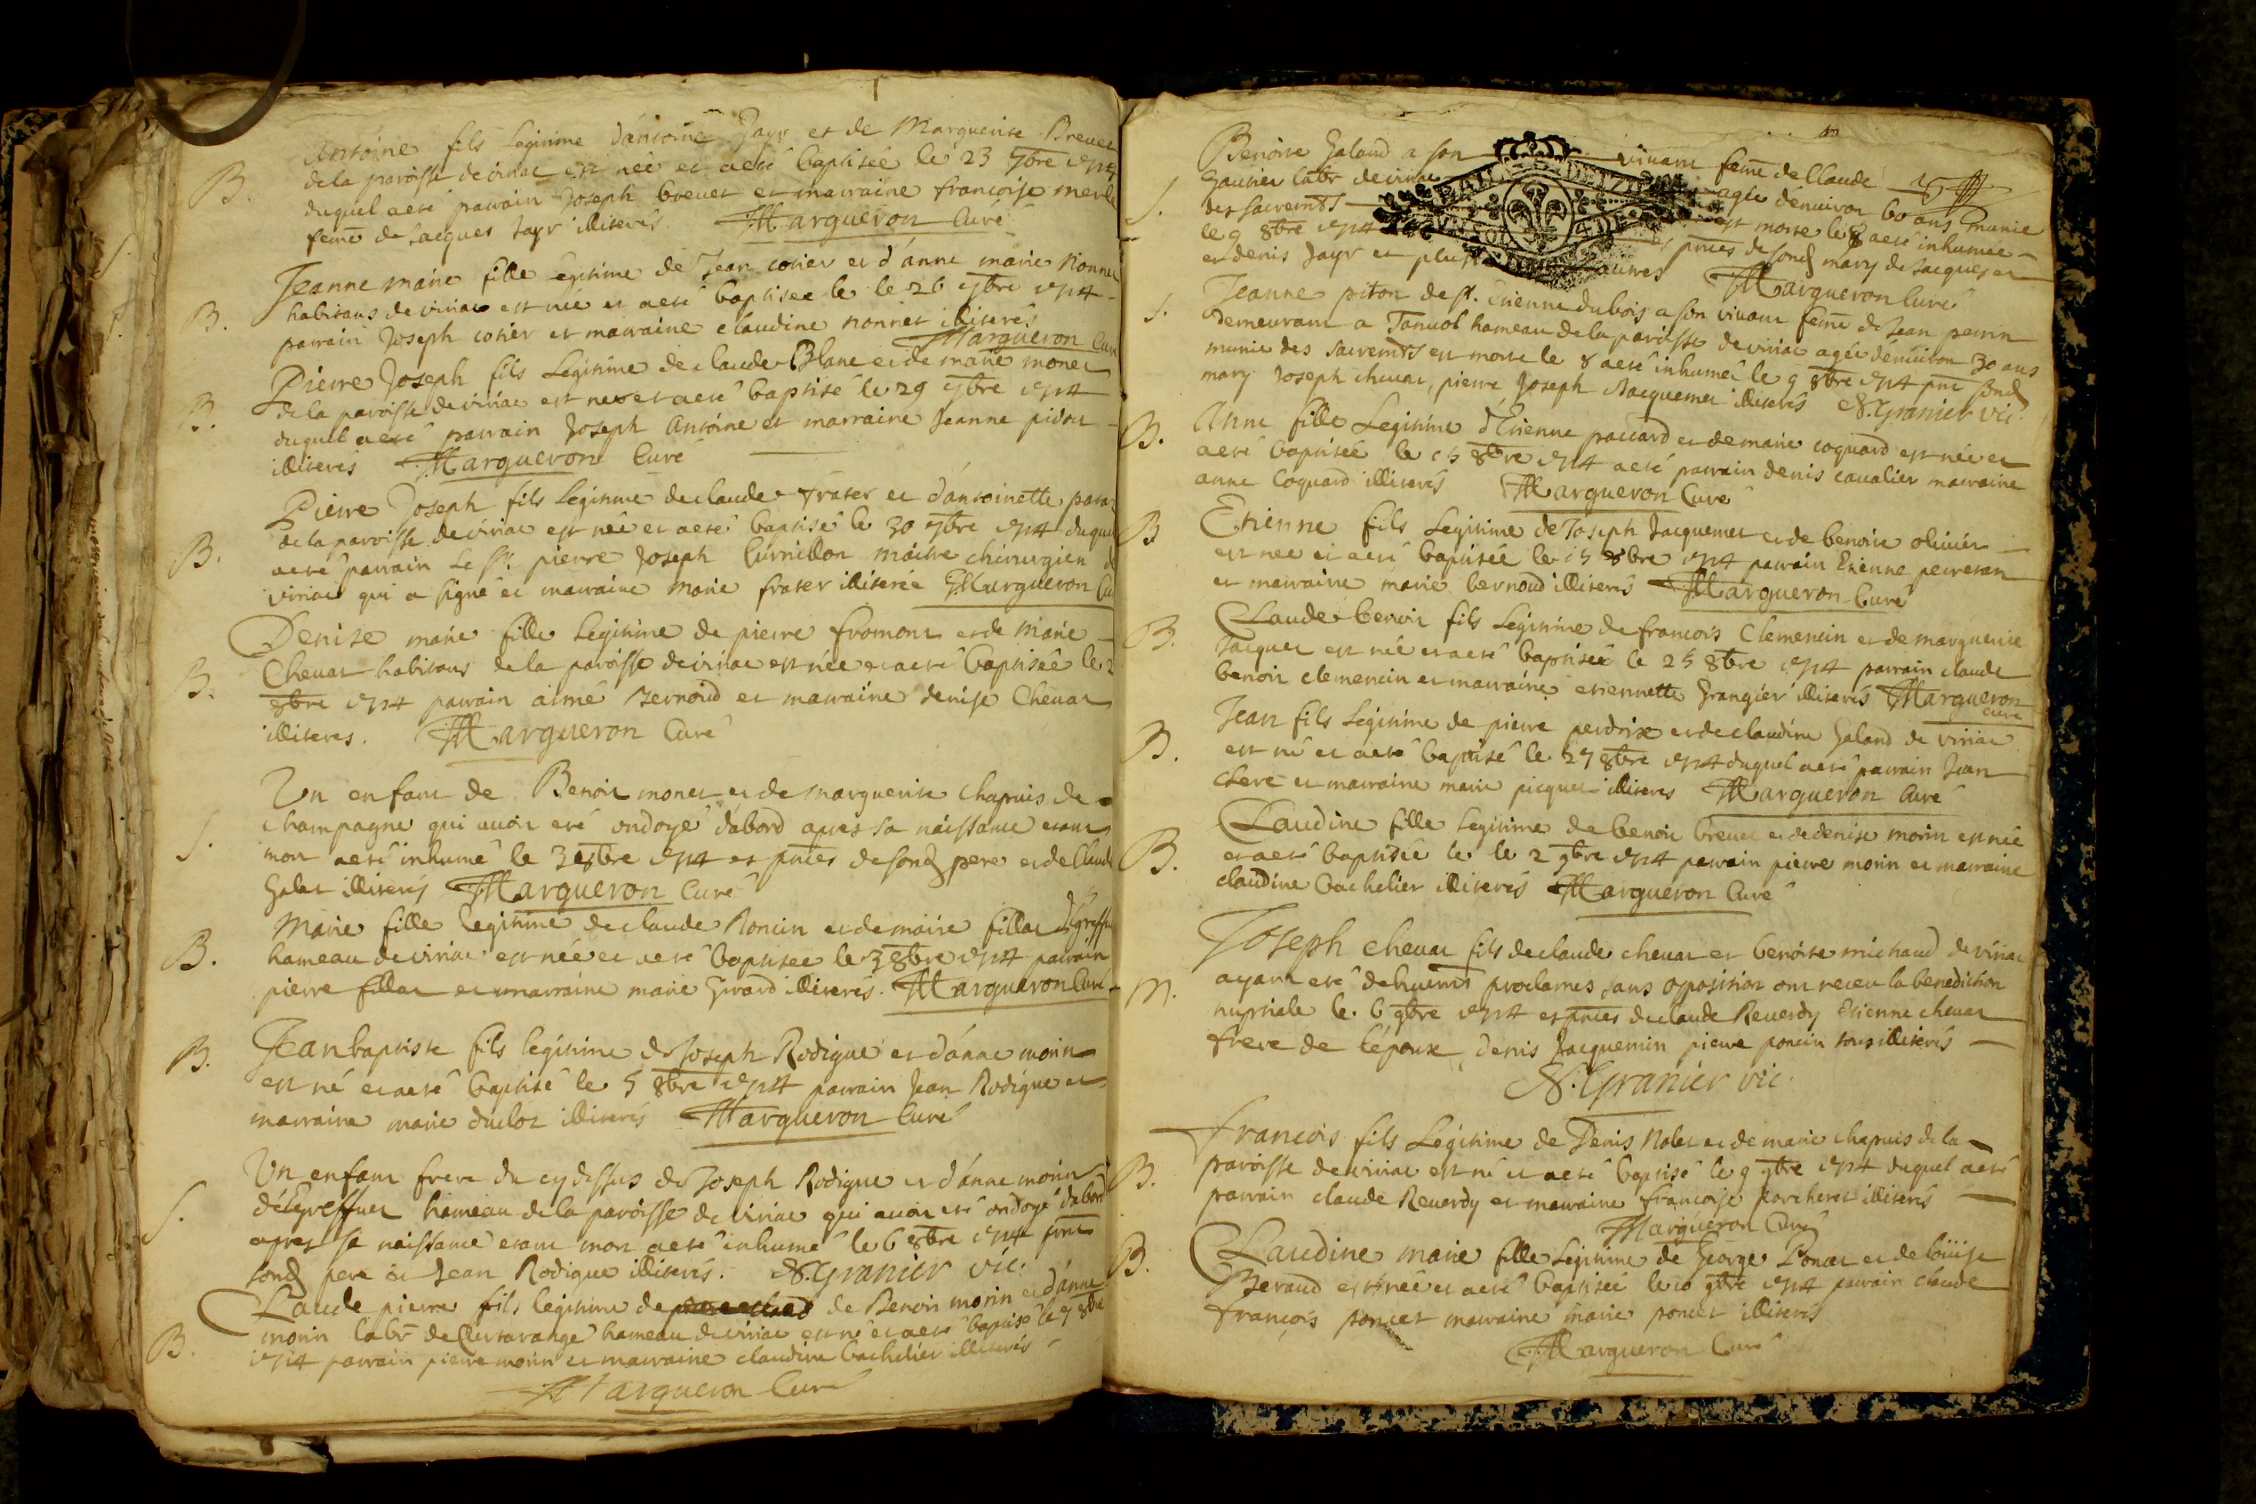 Antoine fils Legitime d'antoine Jayr et de Marguerite Brevet
B.
de la paroisse de viriac est née et aeté baptisée le 23 7bre 1714
duquel aeté parrain Joseph brevet et marraine francoise merle
feme de Jacques Jayr illiterés Margueron Curé
Jeanne marie fille legitime de Jean cotier et d'anne marie Nonnet
B.
habitans de viriac est née et aeté baptisée le le 26 7bre 1714
parrain Joseph cotier et marraine claudine nonnet illiterés
Margueron Curé
Pierre Joseph fils Legitime de claude Blanc et de marie monet
B.
de la paroisse de viriac est né et aeté baptisé le 29 7bre 1714
duquel aeté parrain Joseph Antoine et marraine Jeanne pidou
illiterés Margueron Curé
Pierre Joseph fils Legitime de claude frater et d'antoinette
B.
de la paroisse de viriac est née et aeté baptisé le 30 7bre 1714 duquel
aeté parrain Le Sr. pierre Joseph maitre chirurgien
viriac qui a signé et marraine Marie frater illiterée Margueron
Denise marie fille Legitime de pierre fromont et de Marie
B.
Chevat habitans de la paroisse de viriac est née et aeté baptisée le 2
8bre 1714 parrain aimé Bernoud et marraine denise Chevat
illiteres. Margueron Curé
Un enfant de Benoit monet et de marguerite Chapuis de
S.
Champagne qui avoit eté ondoyé d'abord apres sa naissance etant
mort aeté inhumé le 3 8bre 1714 et pntes de sond pere et de Claude
Galat illiterés Margueron Curé
Marie fille legitime de claude Roncin et de marie fillat
B.
hameau de viriac est née et aeté baptisee le 3 8bre 1714 parrain
pierre fillat et marraine marie Girard illiterés. Margueron Curé
Jean baptiste fils legitime de Joseph Rodigue et d'anne morin
B.
est né et aeté baptisé le 5 8bre 1714 parrain Jean Rodigue et
marraine marie duclot illiteres Margueron Curé
Un enfant frere du cy dessus de Joseph Rodigue et d'anne morin
S.
hameau de la paroisse de viriac qui avoit eté ondoyé d'abord
apres sa naissance etant mort aeté inhumé le 6 8bre 1714 pnt
sond pere et Jean Rodigue illiterés. N. Granier vic.
Claude pierre fils legitime de de Benoit morin et d'anne
B.
morin labr de hameau de viriac est né et aeté baptisé le 7 8bre
1714 parrain pierre morin et marraine claudine bachelier illiterés
Margueron Curé
Benoite Galand a son vivant feme de Claude
S.
Gautier labr de viriac agée d'environ 60 ans munie
des sacremts est morte le 8 aeté inhumée
le 9 8bre 1714 pntes de sond mary de Jacques et
et denis Jayr et plusr autres Margueron Curé
Jeanne piton de St. Etienne du bois a son vivant feme de Jean perrin
S.
demeurant a Tanvol hameau de la paroisse de viriac agée d'environ 30 ans
munie des sacremts est morte le 8 aeté inhumée le 9 8bre 1714 pnt sond
mary Joseph chevat, pierre Joseph Jacquemet illiterés N. Granier vic.
Anne fille Legitime d'Etienne paccard et de marie coquard est née et
B.
aeté baptisée le 15 8bre 1714 aeté parrain denis cavalier marraine
anne Coquard illiterés Margueron Curé
Etienne fils Legitime de Joseph Jacquemet et de benoite olivier
B
est née et aeté baptisée le 15 8bre 1714 parrain Etienne
et marraine marie bernoud illiterés Margueron Curé
Claude benoit fils Legitime de francois Clemencin et de marguerite
B.
Jacquet est née et aeté baptisée le 25 8bre 1714 parrain claude
benoit clemencin et marraine etiennette Grangier illiterés Margueron
Curé
Jean fils Legitime de pierre perdrix et de claudine Galand de viriac
B.
est né et aeté baptisé le 27 8bre 1714 duquel aeté parrain Jean
et marraine marie picquet illiteres Margueron Curé
Claudine fille Legitime de benoit brevet et de denise morin est née
B.
et aeté baptisée le le 2 9bre 1714 parrain pierre morin et marraine
claudine bachelier illiterés Margueron Curé
Joseph chevat fils de claude chevat et benoite michaud de viriac
M.
ayant eté proclames sans oposition ont receu la benediction
nuptiale le 6 9bre 1714 et pntes de claude Reverdy Etienne chevat
frere de l'epoux, denis Jacquemin pierre poncin tous illiterés
N. Granier vic.
francois fils Legitime de Denis Nolet et de marie chapuis de la
B.
paroisse de viriac est né et aeté baptisé le 9 9bre 1714 duquel aeté
parrain claude Reverdy et marraine francoise porcheret illiterés
Margueron Curé
Claudine marie fille Legitime de George Poncet et de loüise
B.
Beraud est née et aeté baptisée le 10 9bre 1714 parrain claude
francois poncet marraine marie poncet illiterés
Margueron Curé